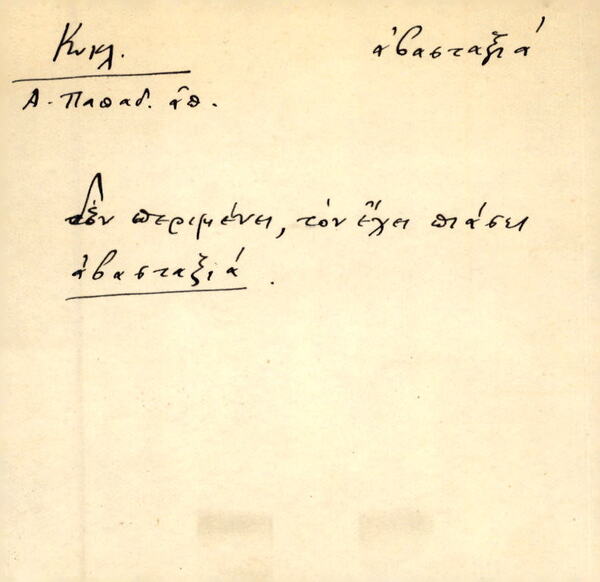 Κυκλ. ἀβασταξιά
Α. Παπαδ. ἀπ.
Δὲν περιμένει, τὸν ἔχει πιάσει
ἀβασταξιά.